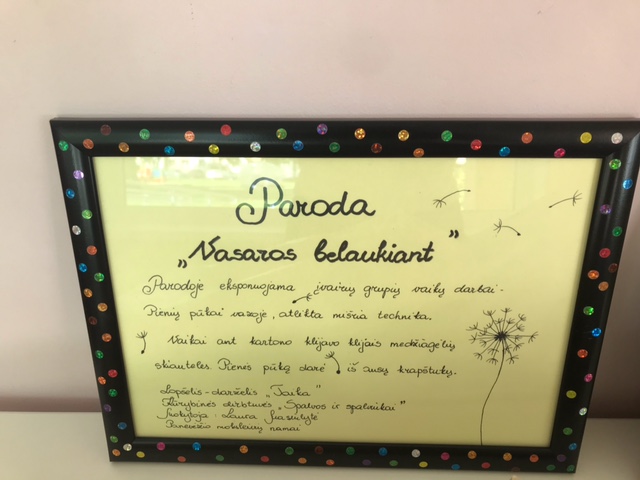 Paroda
„Vasaros belaukiant"
Parodoje eksponuojama įvairių grupių vaikų darbai-
Pienių pūkai vazoje, atlikta mišria technika.
Vaikai ant kartono klijavo klijais medžiagėlių
skiauteles. Pienės pūką darė iš ausų krapštukų.
Lopšelis-darželis „Taika"
Kūrybinės dirbtuvės „Spalvos ir spalviukai"
Mokytoja: Laura
Panevėžio moksleivių namai